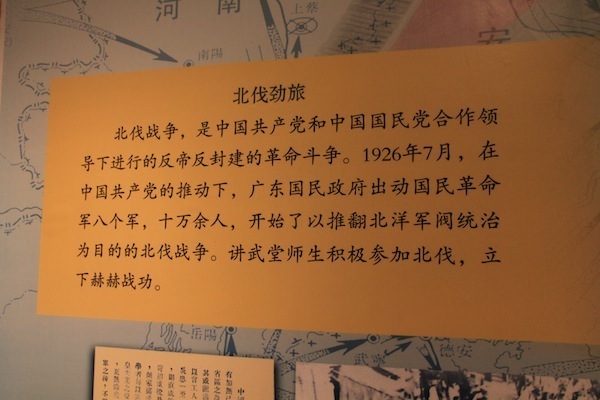 河 南
上蔡
南陽
安
北伐劲旅
北伐战争，是中国共产党和中国国民党合作领
导下进行的反帝反封建的革命斗争。1926年7月，在
中国共产党的推动下，广东国民政府出动国民革命
军八个军，十万余人，开始了以推翻北洋军阀统治
为目的的北伐战争。讲武堂师生积极参加北伐，立
下赫赫战功。
岳陽
武寧
德安